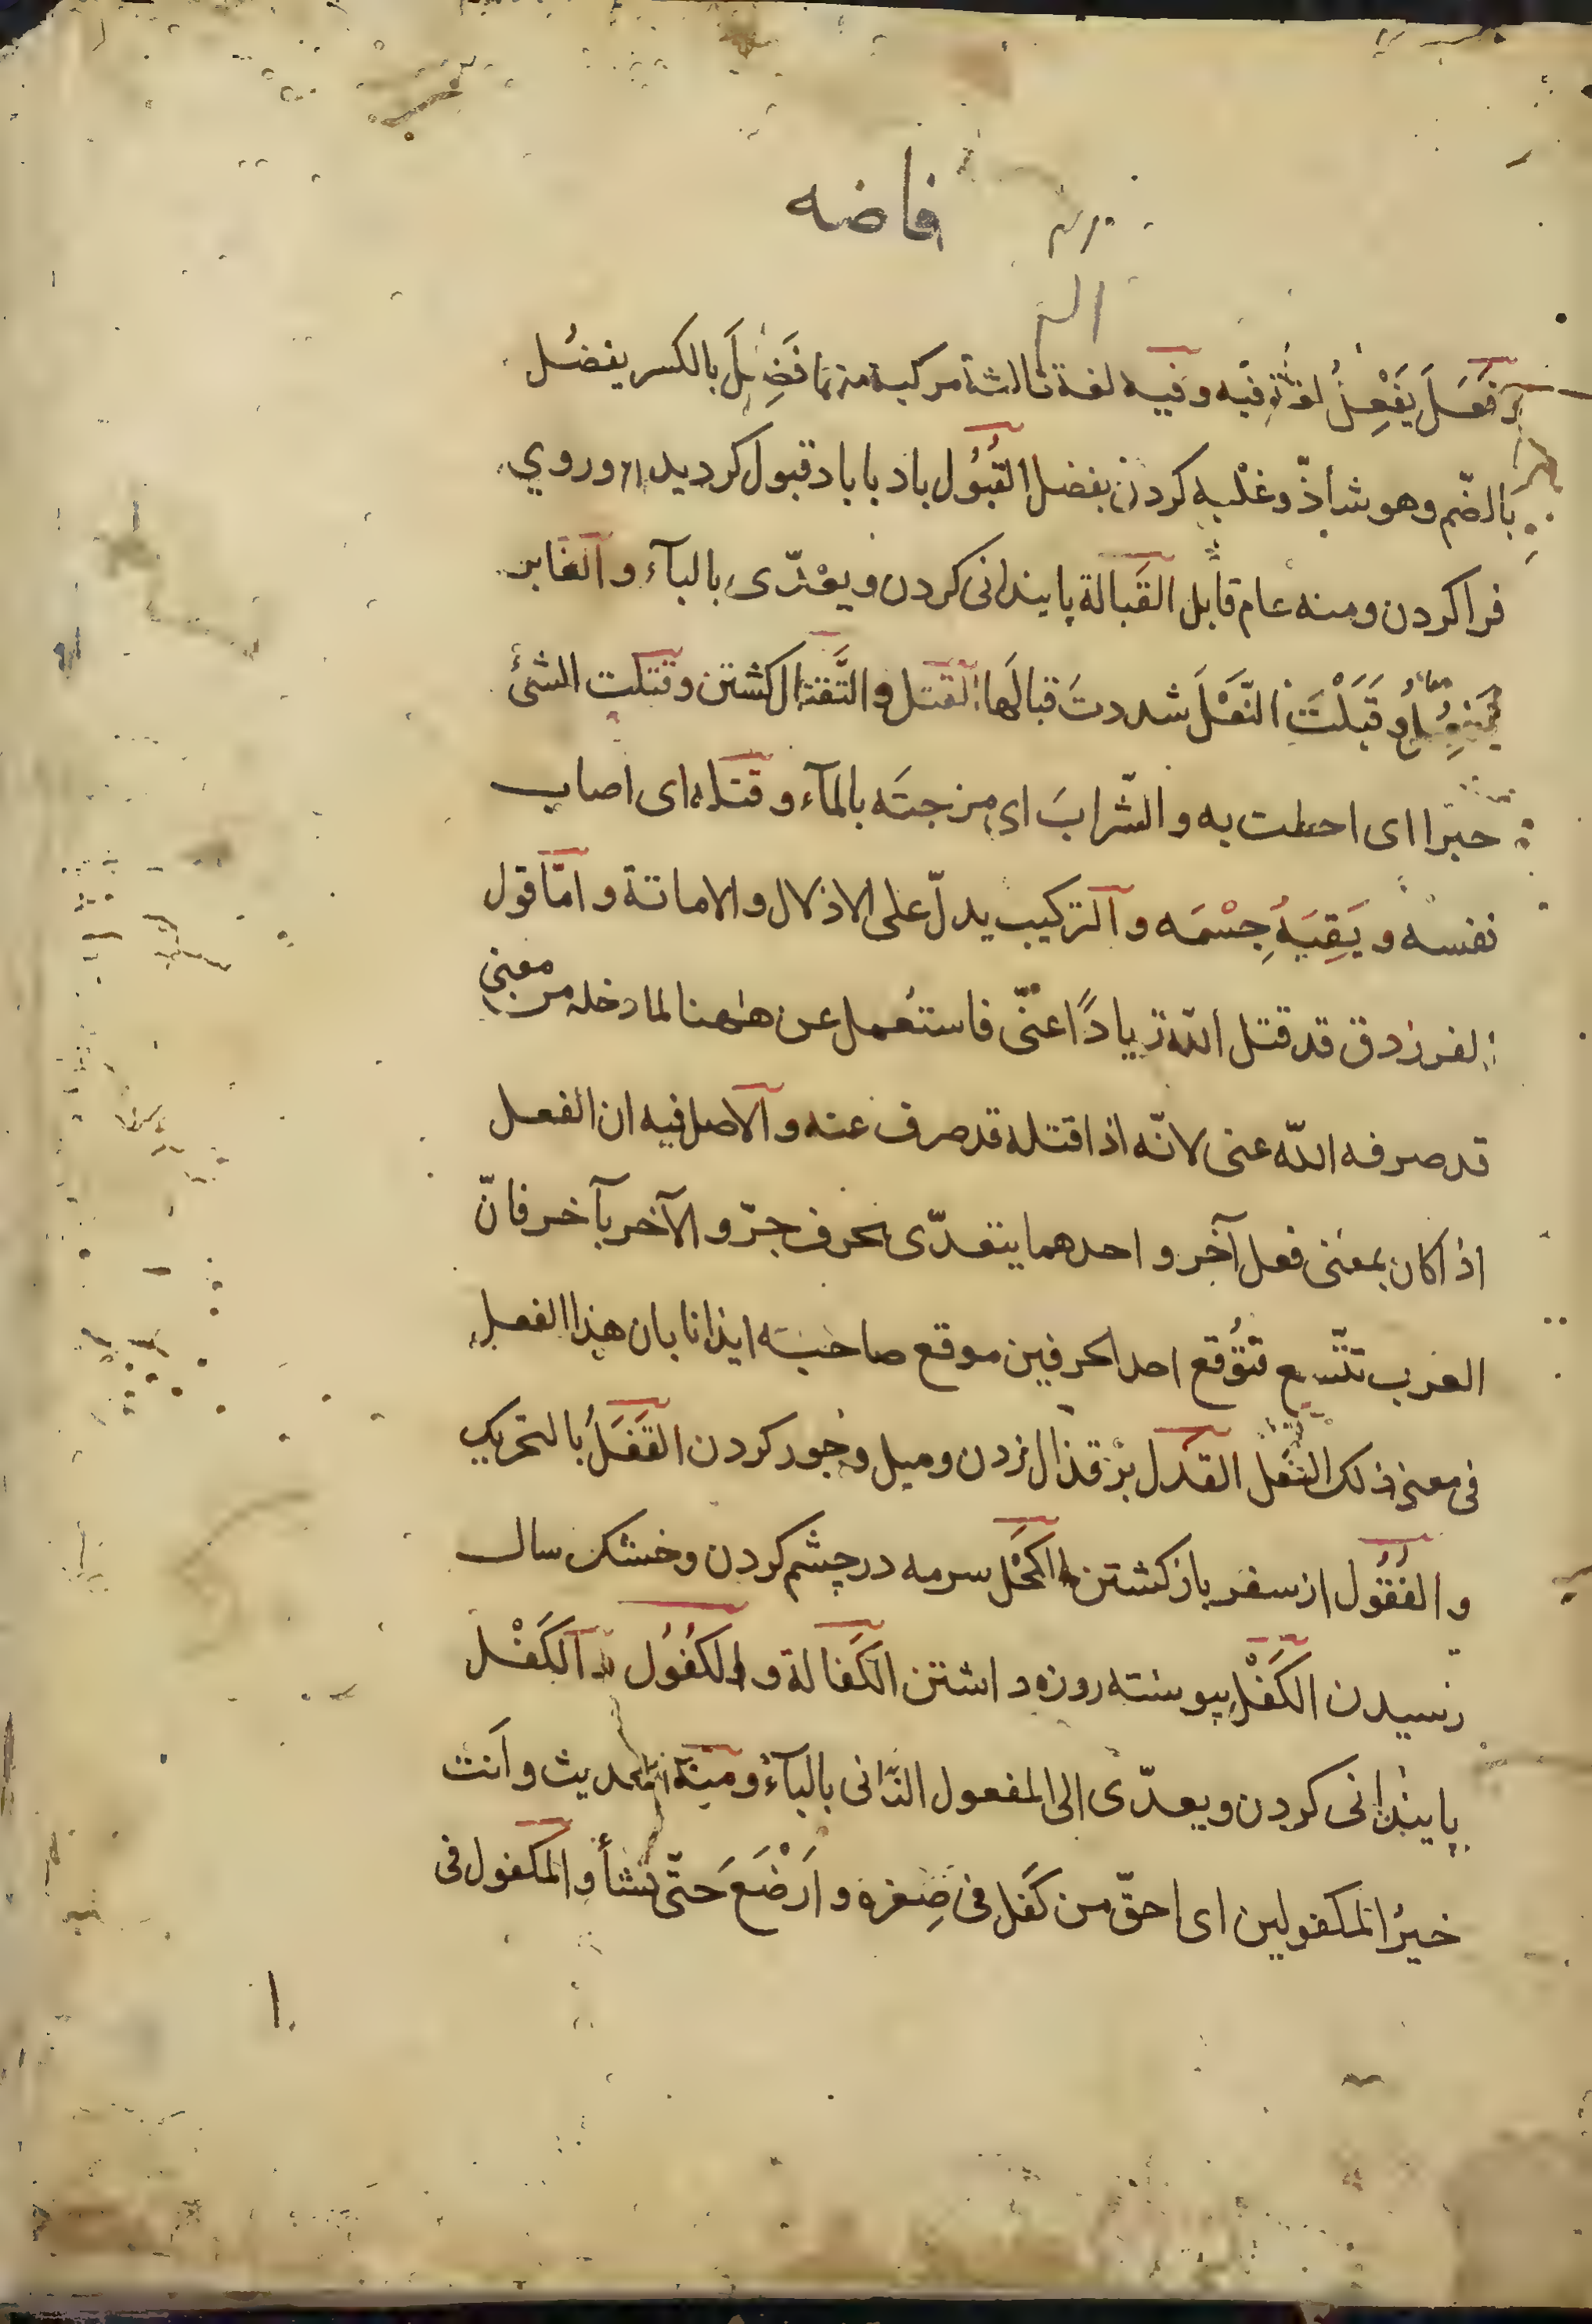 فاضه
فَعَلَ يَفْعِلُ لغة فيه وفيه لغة ثالثة مركبة منهما فَضِلَ بالكسر يفضُل
بالضّم وهو شاذّ وغلْبه كردن بفضل القُبُول باد با باد قبول كرديدن وروي
فرا كردن ومنه عام قابل القَبالة پاينداني كردن ويعْدّى بالبآء والغابر
يفعِلُ وقَبَلْتَ النّعْلَ شددتَ قبالَها القتل والتَّقتال كشتن وقتلت الشئ
خبرا اى احطت به والشّرابَ اى مزجتَه بالمآء وقتله اى اصاب
نفسه و يَقِيَهُ جِسْمَه والتركيب يدلّ على الاذلال والاماتة وامّا قول
الفرزدق قد قتل الله زياداً عنّى فاستُعمل عن هٰهنا لما دخله من معنى
قد صرفه الله عنى لانّه اذا قتله قد صرف عنه والاصل فيه ان الفعل
اذا كان بمعنى فعل آخر واحدهما يتعدّى بحرف جرّ والآخر بآخر فانّ
العرب تتّسع فتُوقع احد الحرفين موقع صاحبه ايذانا بان هذا الفعل
فى معنى ذلك الفعل القذل بر قذال زدن وميل وجور كردن القَفَلُ بالتحريك
والقُفُول از سفر باز كشتن الكَحْل سرمه در چشم كردن وخشك سال
رسيدن الكَفْل پيوسته روزه داشتن الكَفالة والكُفُول والكَفْل
پاينداني كردن ويعدّى الى المفعول الثانى بالبآء ومنه الحديث وأنت
خيرُ المكفولين اى احقّ من كَفَل فى صِغره وأَرْضَعَ حتّى نشأ والمكفول فى